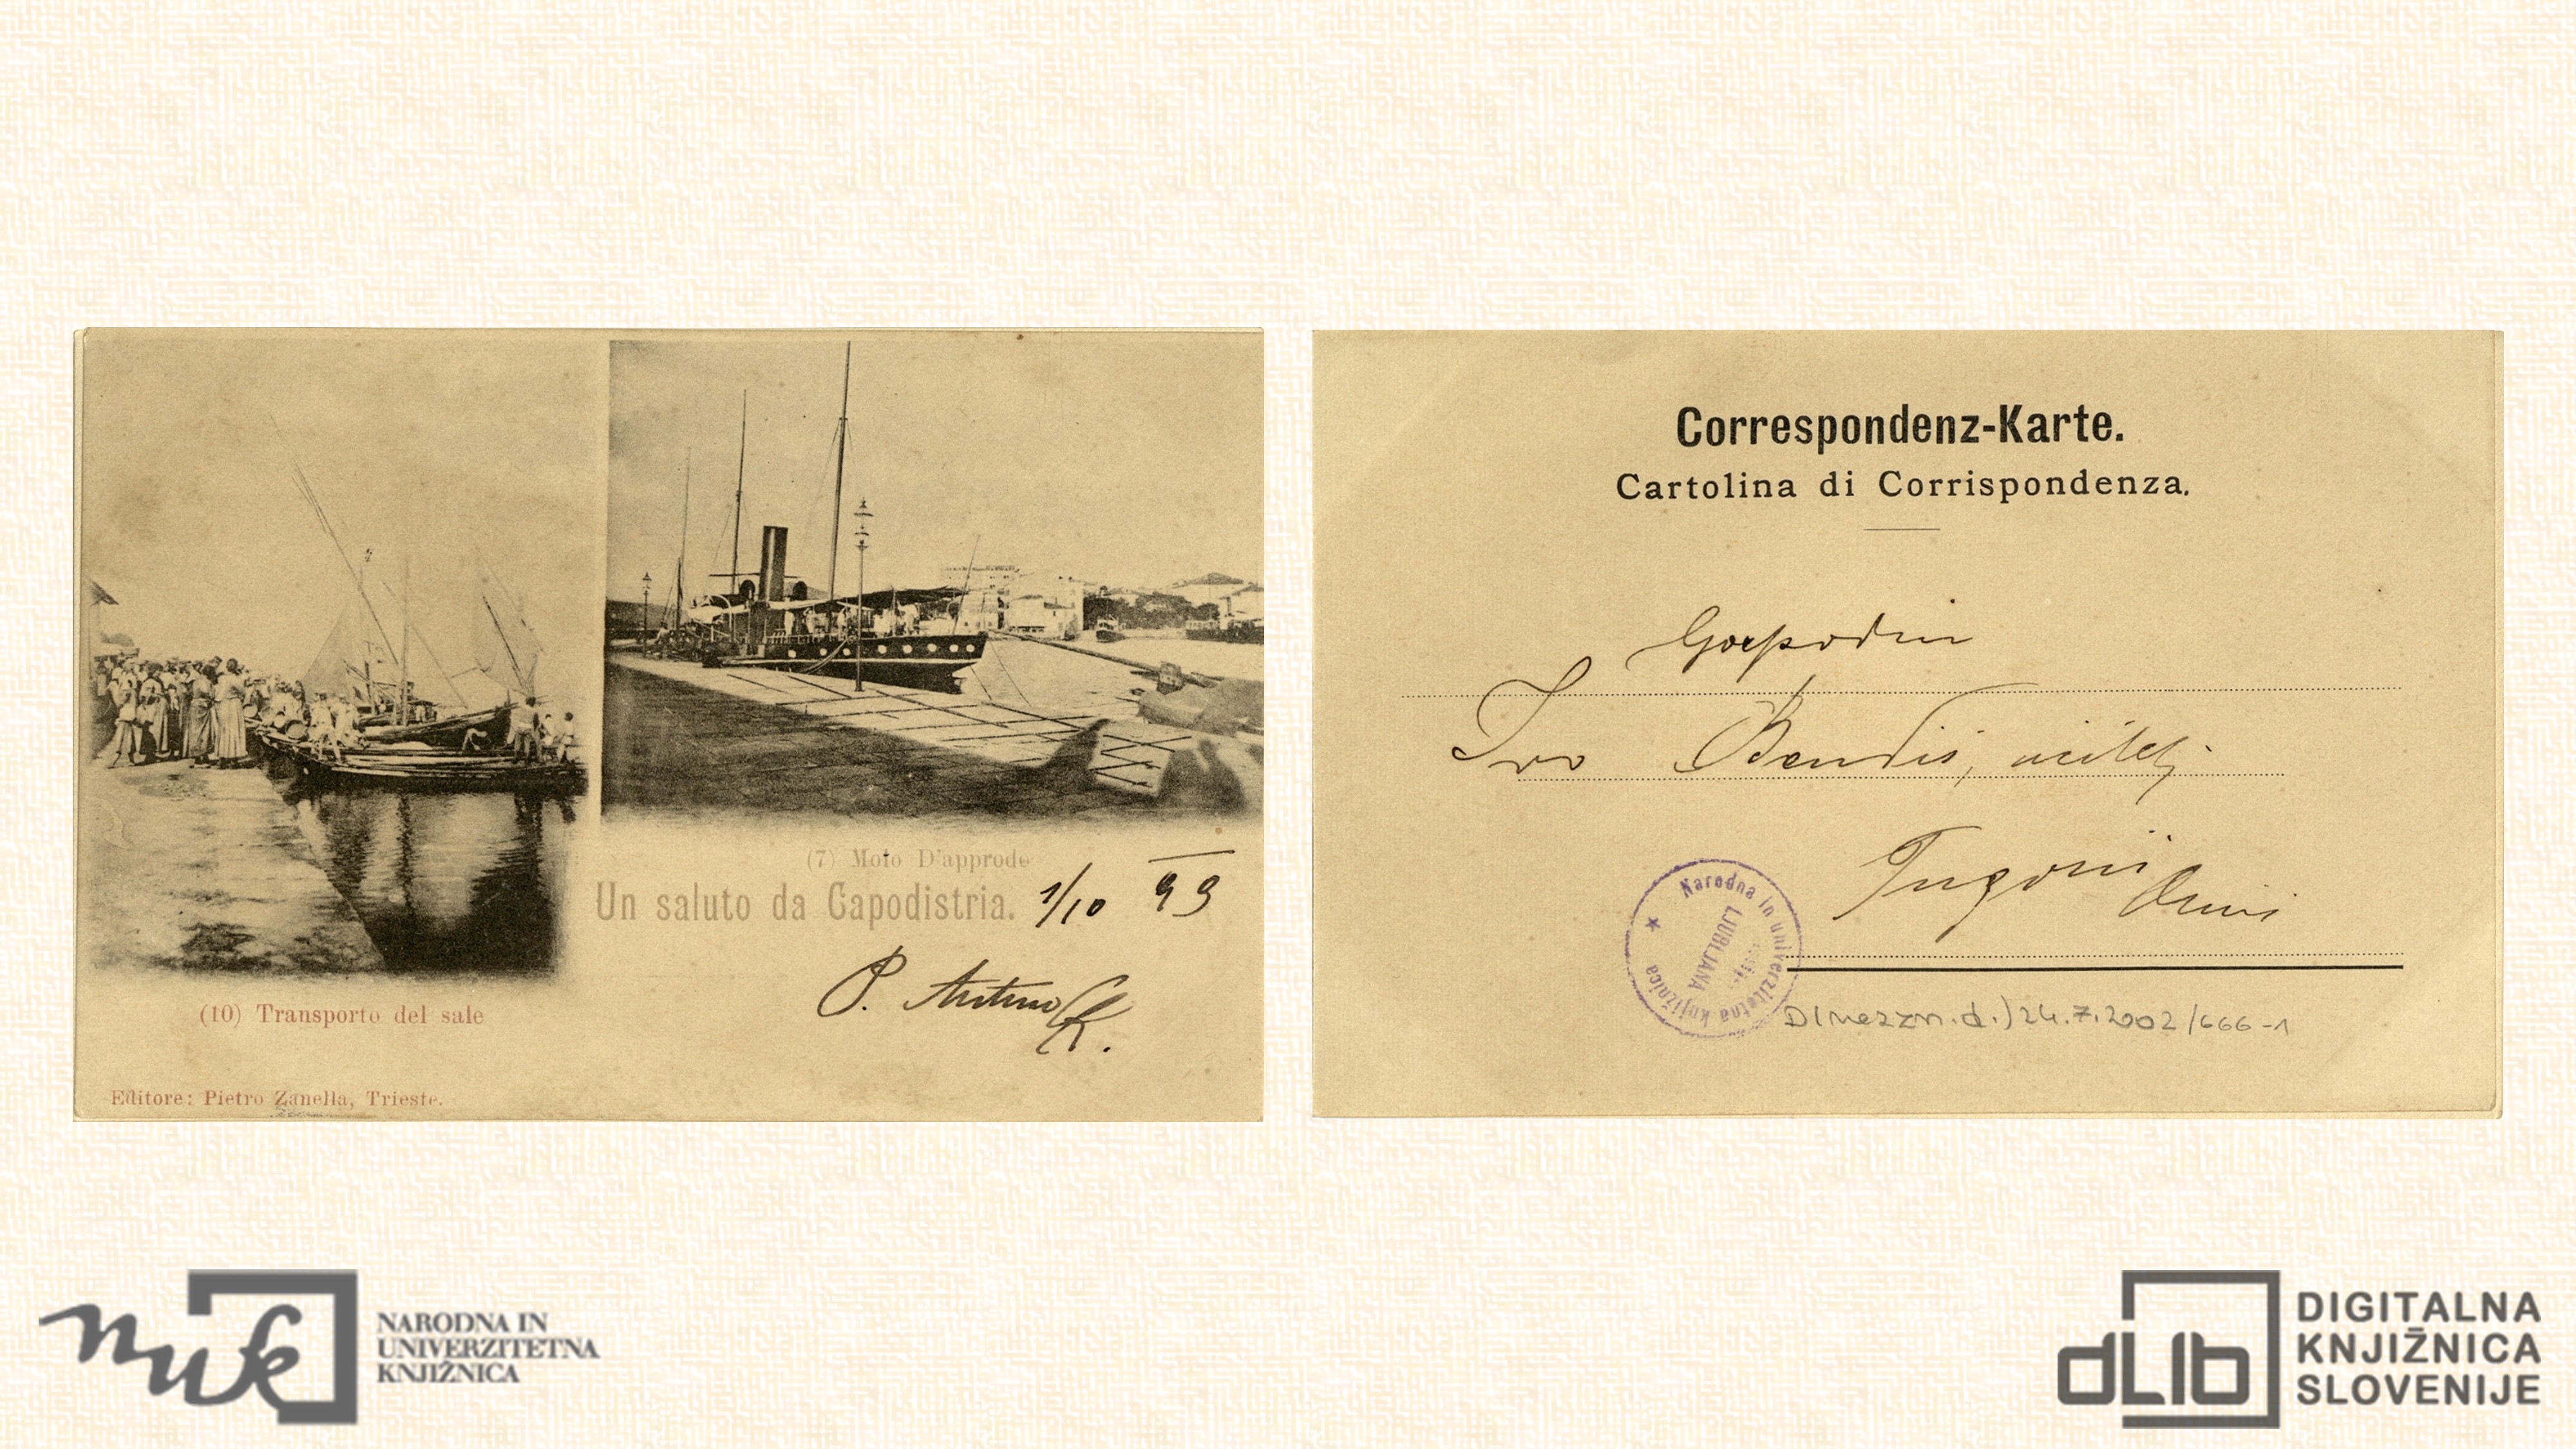 (7) Molo D'approdo
Un saluto da Capodistria. 1/10 99
P. Artuno K.
(10) Transporto del sale
Editore: Pietro Zanella, Trieste.
Correspondenz-Karte.
Cartolina di Corrispondenza.
Gospodin
Ivo Bendiš, učitelj
Narodna in univerzitetna knjižnica
LJUBLJANA
D(nezzn.d.) 24.7.2002/666-1
nuk
NARODNA IN
UNIVERZITETNA
KNJIŽNICA
dLib
DIGITALNA
KNJIŽNICA
SLOVENIJE